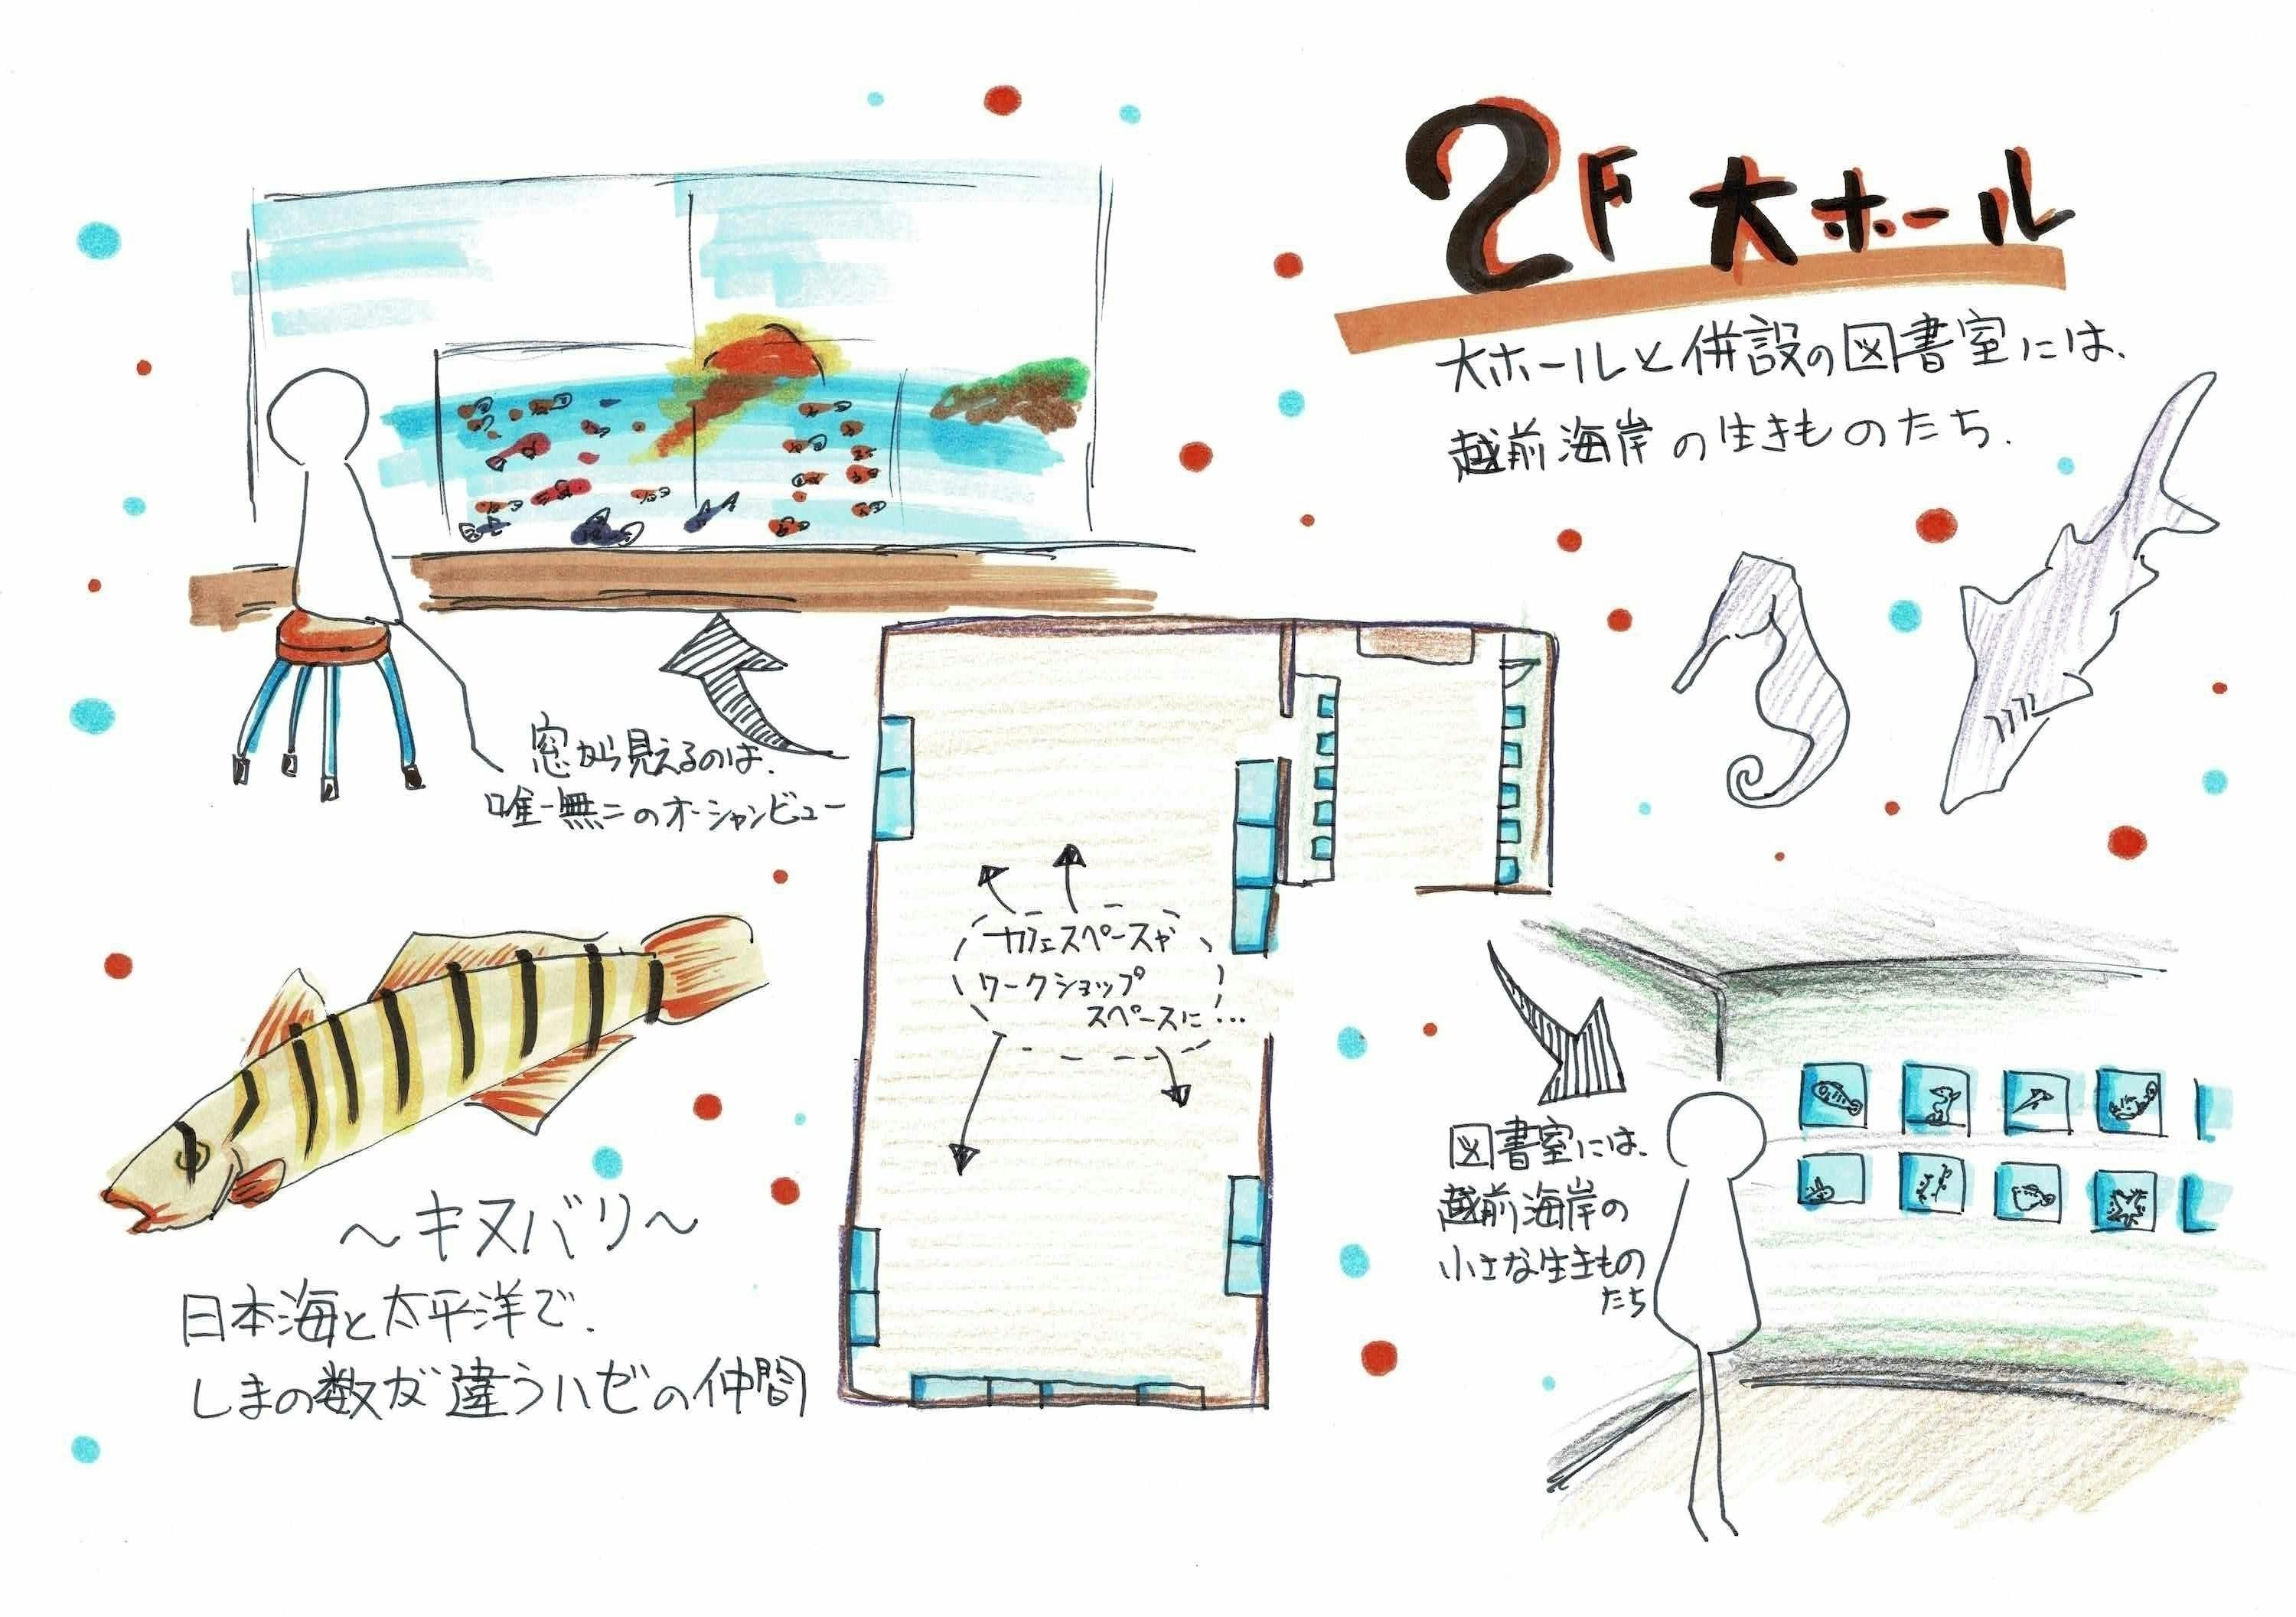 2F 大ホール
大ホールと併設の図書室には、
越前海岸の生きものたち.
窓から見えるのは、
唯一無二のオーシャンビュー
カフェスペースや
ワークショップ
スペースに…
〜キヌバリ〜
日本海と太平洋で、
しまの数が違うハゼの仲間
図書室には、
越前海岸の
小さな生きもの
たち